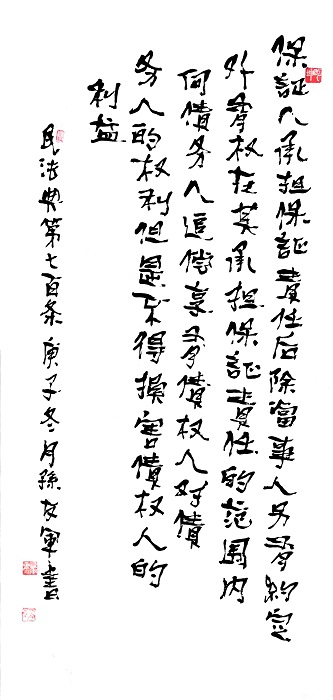 保証人承担保証責任后除當事人另有約定
外有权在其承担保証責任的范围内
向債务人追偿享有債权人对債
务人的权利但是不得損害債权人的
利益
民法典第七百条庚子冬月孫友軍書